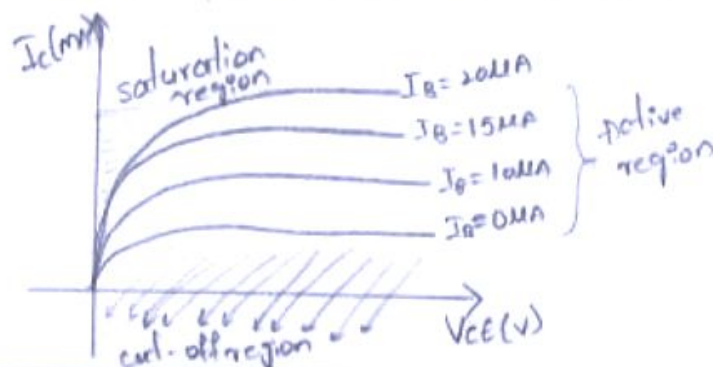 Ic(mA)
saturation
region
IB = 20μA
IB = 15μA
IB = 10μA
IB = 0μA
Active
region
VCE (V)
cut-off region